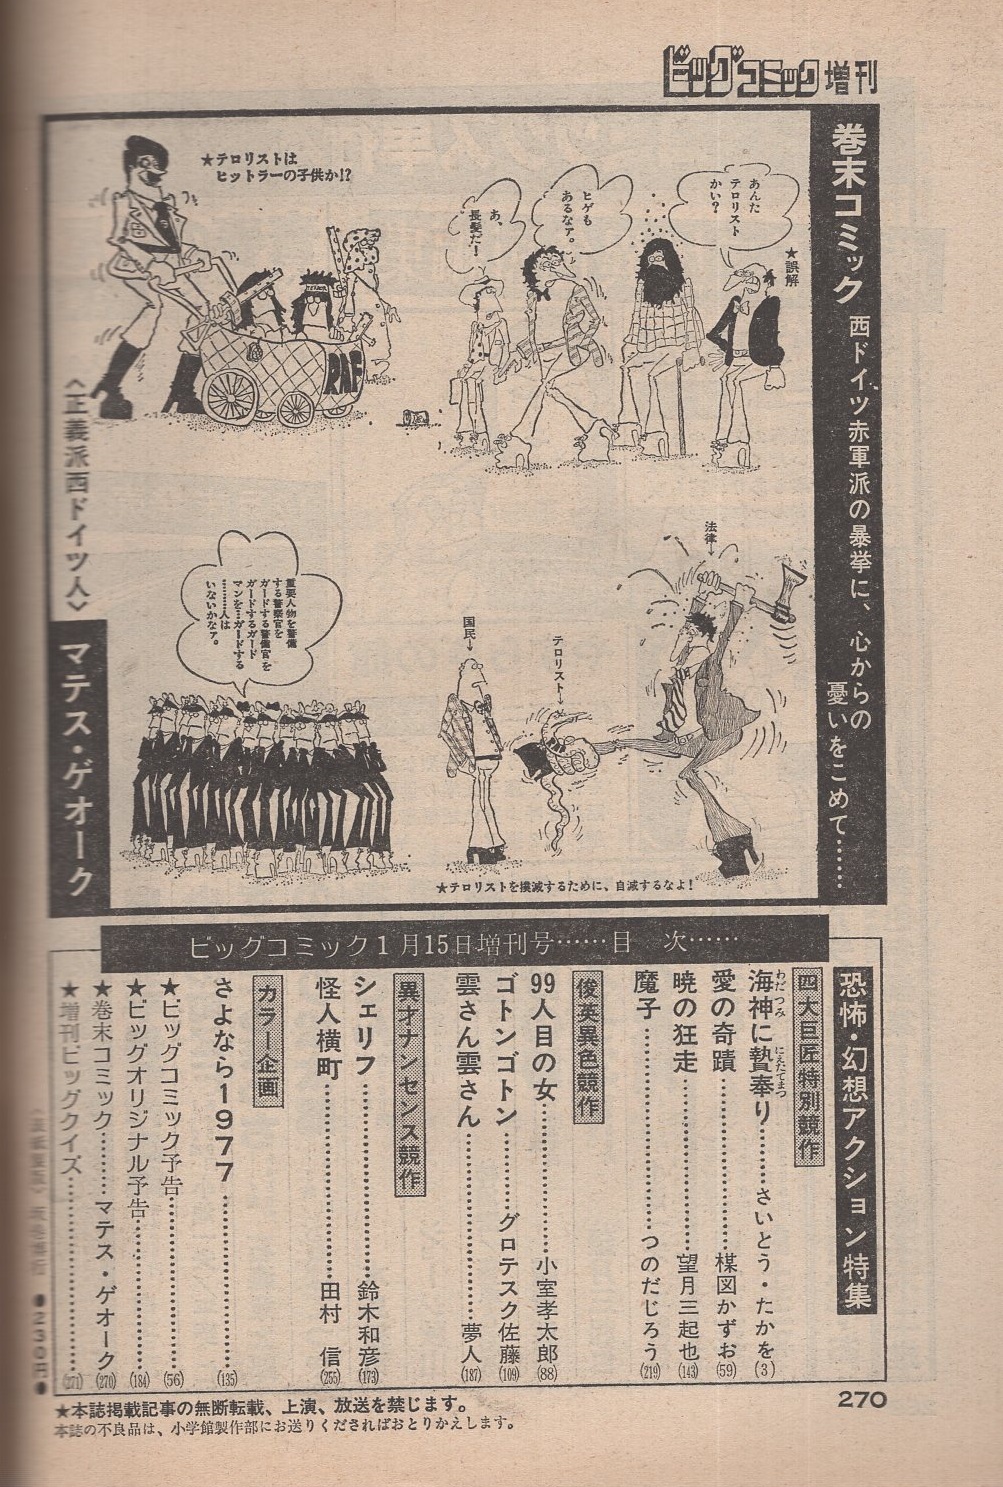 ビッグコミック増刊
巻末コミック 西ドイツ赤軍派の暴挙に、心からの
憂いをこめて……
★誤解
あんた
テロリスト
かい?
ヒゲも
あるなァ。
あ、
長髪だ!
★テロリストは
ヒットラーの子供か!?
RAF
法律→
テロリスト→
国民→
★テロリストを撲滅するために、自滅するなよ!
重要人物を警備
する警察官を
ガードする警備官を
ガードするガード
マンを…ガードする
………人は
いないかなァ。
〈正義派西ドイツ人〉
マテス・ゲオーク
ビッグコミック1月15日増刊号……目 次……
恐怖・幻想アクション特集
四大巨匠特別競作
海神に贄奉り………さいとう・たかを(3)
わだつみ にえたてまつ
愛の奇蹟………楳図かずお(59)
暁の狂走………望月三起也(143)
魔子………つのだじろう(219)
俊英異色競作
99人目の女………小室孝太郎(88)
ゴトンゴトン………グロテスク佐藤(109)
雲さん雲さん………夢人(187)
異才ナンセンス競作
シェリフ………鈴木和彦(173)
怪人横町………田村 信(255)
カラー企画
さよなら1977………(135)
★ビッグコミック予告………(56)
★ビッグオリジナル予告………(184)
★巻末コミック………マテス・ゲオーク(270)
★増刊ビッグクイズ………(271)
●230円●
★本誌掲載記事の無断転載、上演、放送を禁じます。
本誌の不良品は、小学館製作部にお送りくださればおとりかえします。
270